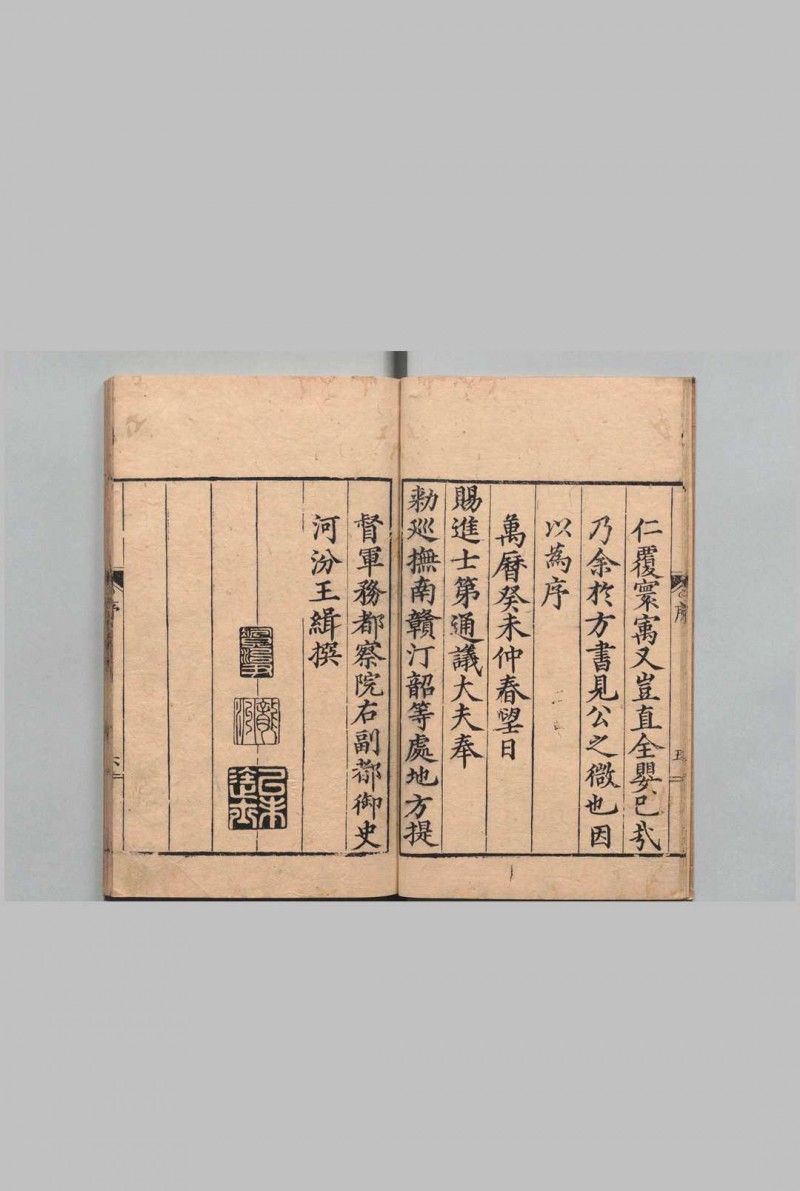 仁覆寰寓又豈直全嬰已㢤
乃余於方書見公之微也因
以為序
萬曆癸未仲春望日
賜進士第通議大夫奉
勑廵撫南贛汀韶等處地方提
督軍務都察院右副都御史
河汾王緝撰
序
五
序
六